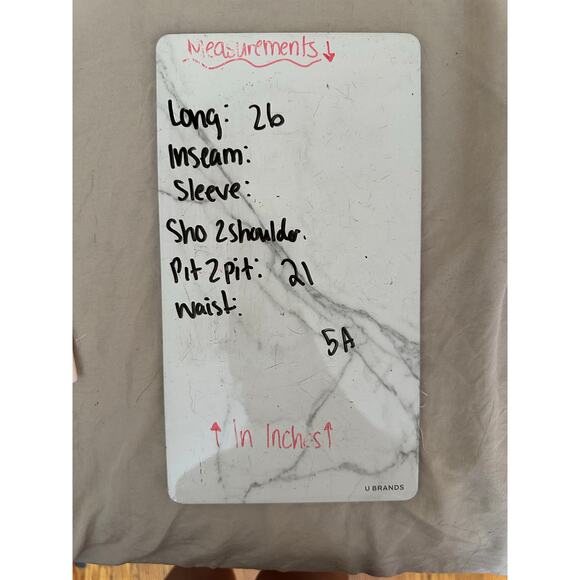 Measurements ↓
Long: 26
Inseam:
Sleeve:
Sho 2shoulder.
Pit 2 pit: 21
waist:
5A
↑ in Inches ↑
U BRANDS